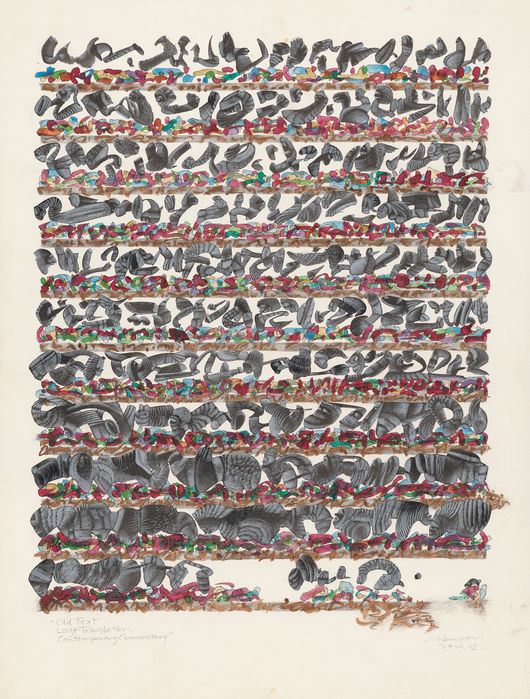 "Old Text
Loose Translation
Contemporary Commentary"